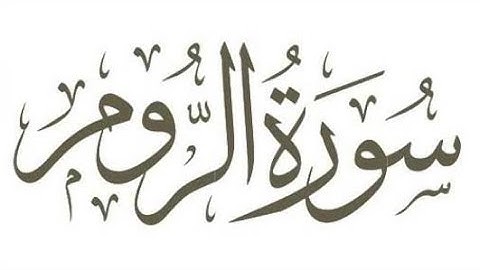 سُورَةُ الرُّوم